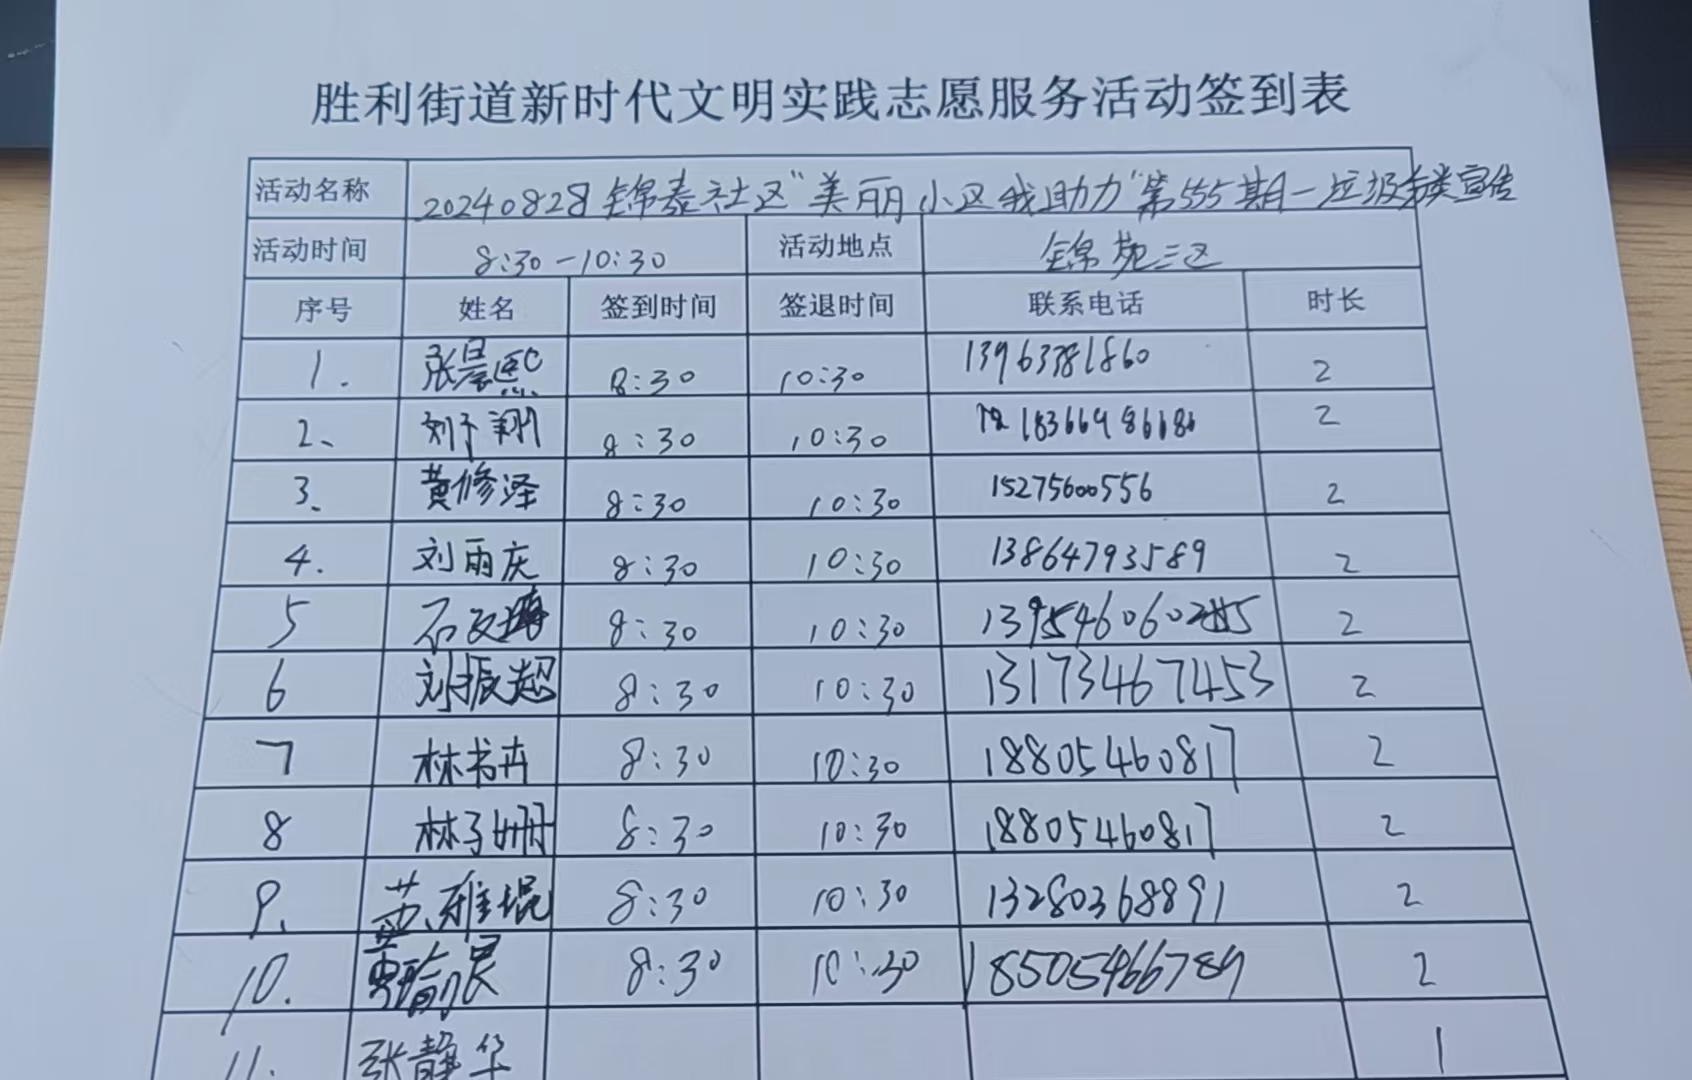 胜利街道新时代文明实践志愿服务活动签到表
活动名称 20240828锦泰社区"美丽小区我助力"第555期—垃圾分类宣传
活动时间 8:30-10:30 活动地点 锦苑三区
序号 姓名 签到时间 签退时间 联系电话 时长
1. 张晨熙 8:30 10:30 13963381860 2
2、 刘卜翔 8:30 10:30 18366486686 2
3、 黄修泽 8:30 10:30 15275600556 2
4. 刘雨庆 8:30 10:30 13864793589 2
5 石 8:30 10:30 2
6 刘振超 8:30 10:30 13173467453 2
7 林书卉 8:30 10:30 18805460817 2
8 林子姗 8:30 10:30 18805460817 2
9. 雅琨 8:30 10:30 13280368891 2
10. 8:30 10:30 18505466789 2
11. 张静华 1